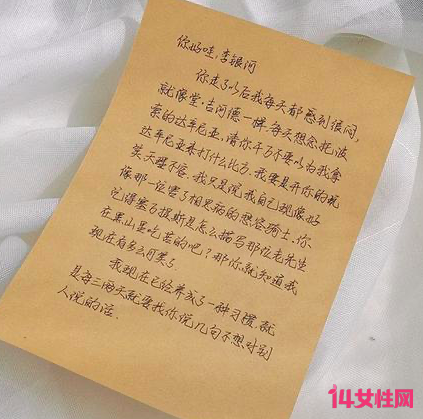 你好哇，李银河
你走了以后我每天都感到很闷，
就像堂·吉诃德一样，每天想念托波
索的达辛尼亚。请你千万不要以为我拿
达辛尼亚来打什么比方。我要是开你的玩
笑天理不容。我只是说我自己现像好
像那一位害了相思病的愁容骑士。你
记得塞万提斯是怎么描写那位老先生
在黑山里吃苦的吧？那你就知道我
现在有多么可笑了
我现在已经养成了一种习惯，就
是每三两天就要找你说几句不想对别
人说的话。
14女性网